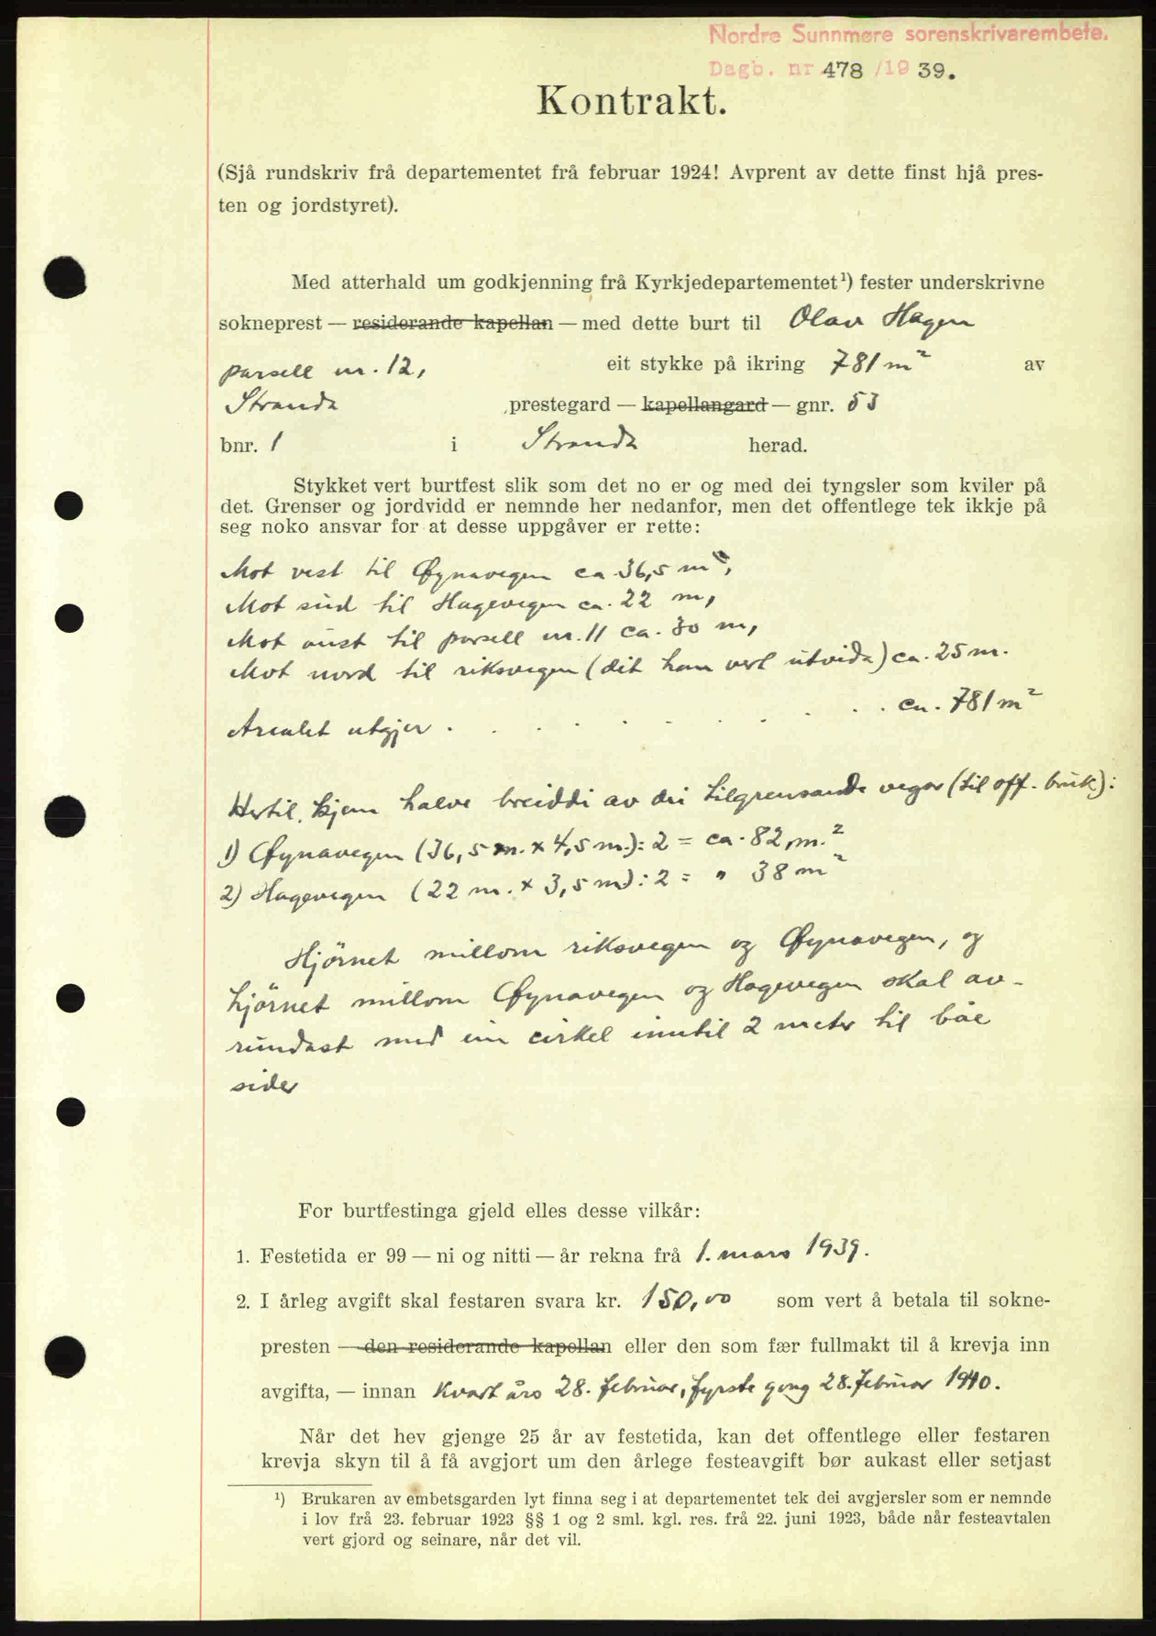 Nordre Sunnmøre sorenskrivarembete.
Dagb. nr 478 /19 39.
Kontrakt.
(Sjå rundskriv frå departementet frå februar 1924! Avprent av dette finst hjå pres-
ten og jordstyret).
Med atterhald um godkjenning frå Kyrkjedepartementet¹) fester underskrivne
sokneprest — residerande kapellan — med dette burt til Olav Hagen
parsell nr. 12, eit stykke på ikring 781 m² av
Stranda prestegard — kapellangard — gnr. 53
bnr. 1 i Stranda herad.
Stykket vert burtfest slik som det no er og med dei tyngsler som kviler på
det. Grenser og jordvidd er nemnde her nedanfor, men det offentlege tek ikkje på
seg noko ansvar for at desse uppgåver er rette:
Mot vest til Øynavegen ca 36,5 m,
Mot sud til Hagevegen ca. 22 m,
Mot aust til parsell nr. 11 ca. 30 m,
Mot nord til riksvegen (dit han vert utvida) ca. 25 m.
Arealet utgjer . . . . . . . . . ca. 781 m²
Hertil kjem halve breiddi av dei tilgrensande vegar (til off. bruk):
1) Øynavegen (36,5 m. x 4,5 m.): 2 = ca. 82 m.²
2) Hagevegen (22 m. x 3,5 m): 2 = " 38 m²
Hjørnet millom riksvegen og Øynavegen, og
hjørnet millom Øynavegen og Hagevegen skal av-
rundast med ein cirkel inntil 2 meter til båe
sider
For burtfestinga gjeld elles desse vilkår:
1. Festetida er 99 — ni og nitti — år rekna frå 1. mars 1939.
2. I årleg avgift skal festaren svara kr. 150,00 som vert å betala til sokne-
presten — den residerande kapellan eller den som fær fullmakt til å krevja inn
avgifta, — innan kvart års 28. februar, fyrste gong 28. februar 1940.
Når det hev gjenge 25 år av festetida, kan det offentlege eller festaren
krevja skyn til å få avgjort um den årlege festeavgift bør aukast eller setjast
¹) Brukaren av embetsgarden lyt finna seg i at departementet tek dei avgjersler som er nemnde
i lov frå 23. februar 1923 §§ 1 og 2 sml. kgl. res. frå 22. juni 1923, både når festeavtalen
vert gjord og seinare, når det vil.